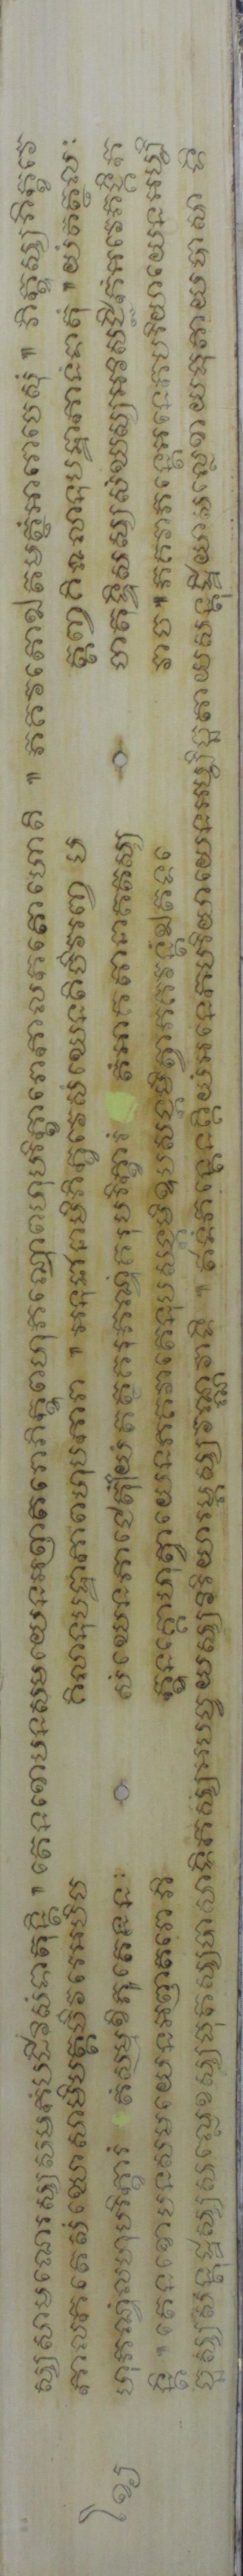 ស្សសាមណេរស្សសមកំបដិវិសំទាតុន្តិ ៕ តេនខោបនសមយេនអញ្ញតរោភិក្ខុពហុភណ្ឌោពហុបរិក្ខារោកាលកតោហោតិ ៕ ភគវតោឯតមត្ថំអារោចេសុំ ៕ ភិក្ខុស្សភិក្ខវេ
កាលកតេសំឃោសាមិបត្តចីវរេអបិច គិលានុបដ្ឋាកាពហុបការា ៕ អនុជានាមិភិក្ខវេសំឃេនតិចីវរញ្ច ប ត្តញ្ចគិលានុបដ្ឋាកានំទាតុំ ៕ យំតត្ថលៈ
ហុភណ្ឌំលហុបរិក្ខារំ តំសម្មុខីភូតេននៈ សំឃេនភាជេតុំ ៕ យំតត្ថគរុភណ្ឌំគរុបរិក្ខារំ តំអាគតានាគតស្ស ចាតុទ្ទិសស្សសំឃស្សអវិសជ្ជិកំអវេភង្គិក
ន្តិ ៕ តេនខោបនសមយេនអញ្ញតរោ ភិ ក្ខុនគ្គោហុត្វាយេនភគវាតេនុបសង្កមិឧបសង្កមិត្វាភគវន្តំឯតទវោ វោច ៕ ភគវាភន្តេអនេកបរិយាយេនអប្បិ
ច្ឆស្សសន្តុដ្ឋស្សសល្លេខស្សធុតស្សបាសាទិកស្សអបចយស្សវិរិយារម្ភស្សវណ្ណវាទិ ៕ ឥទំភន្តេនគ្គិយំអនេកបរិយាយេនអប្បិច្ឆតាយសន្តុដ្ឋិយាសល្លេខាយធុតាយបាសា ទិ